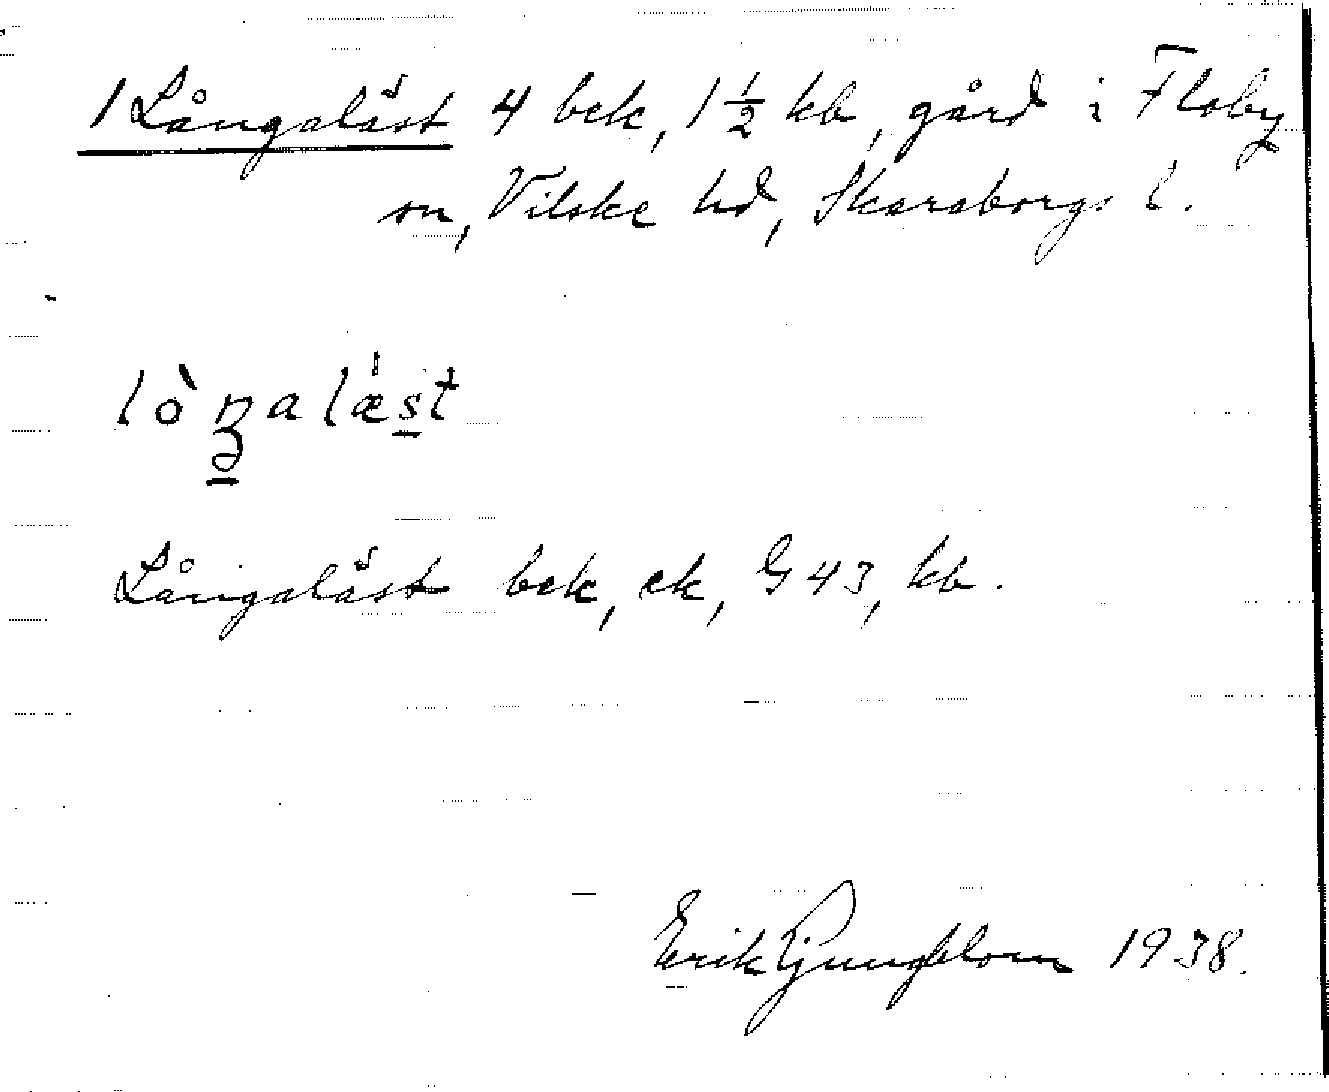 1 Långaläst 4 bek, 1 1/2 kb, gård i Floby
sn, Vilske hd, Skaraborgs l.
lòŋalæ̍st
Långaläst bek, ek, G 43, kb.
Erik Ljungblom 1938.